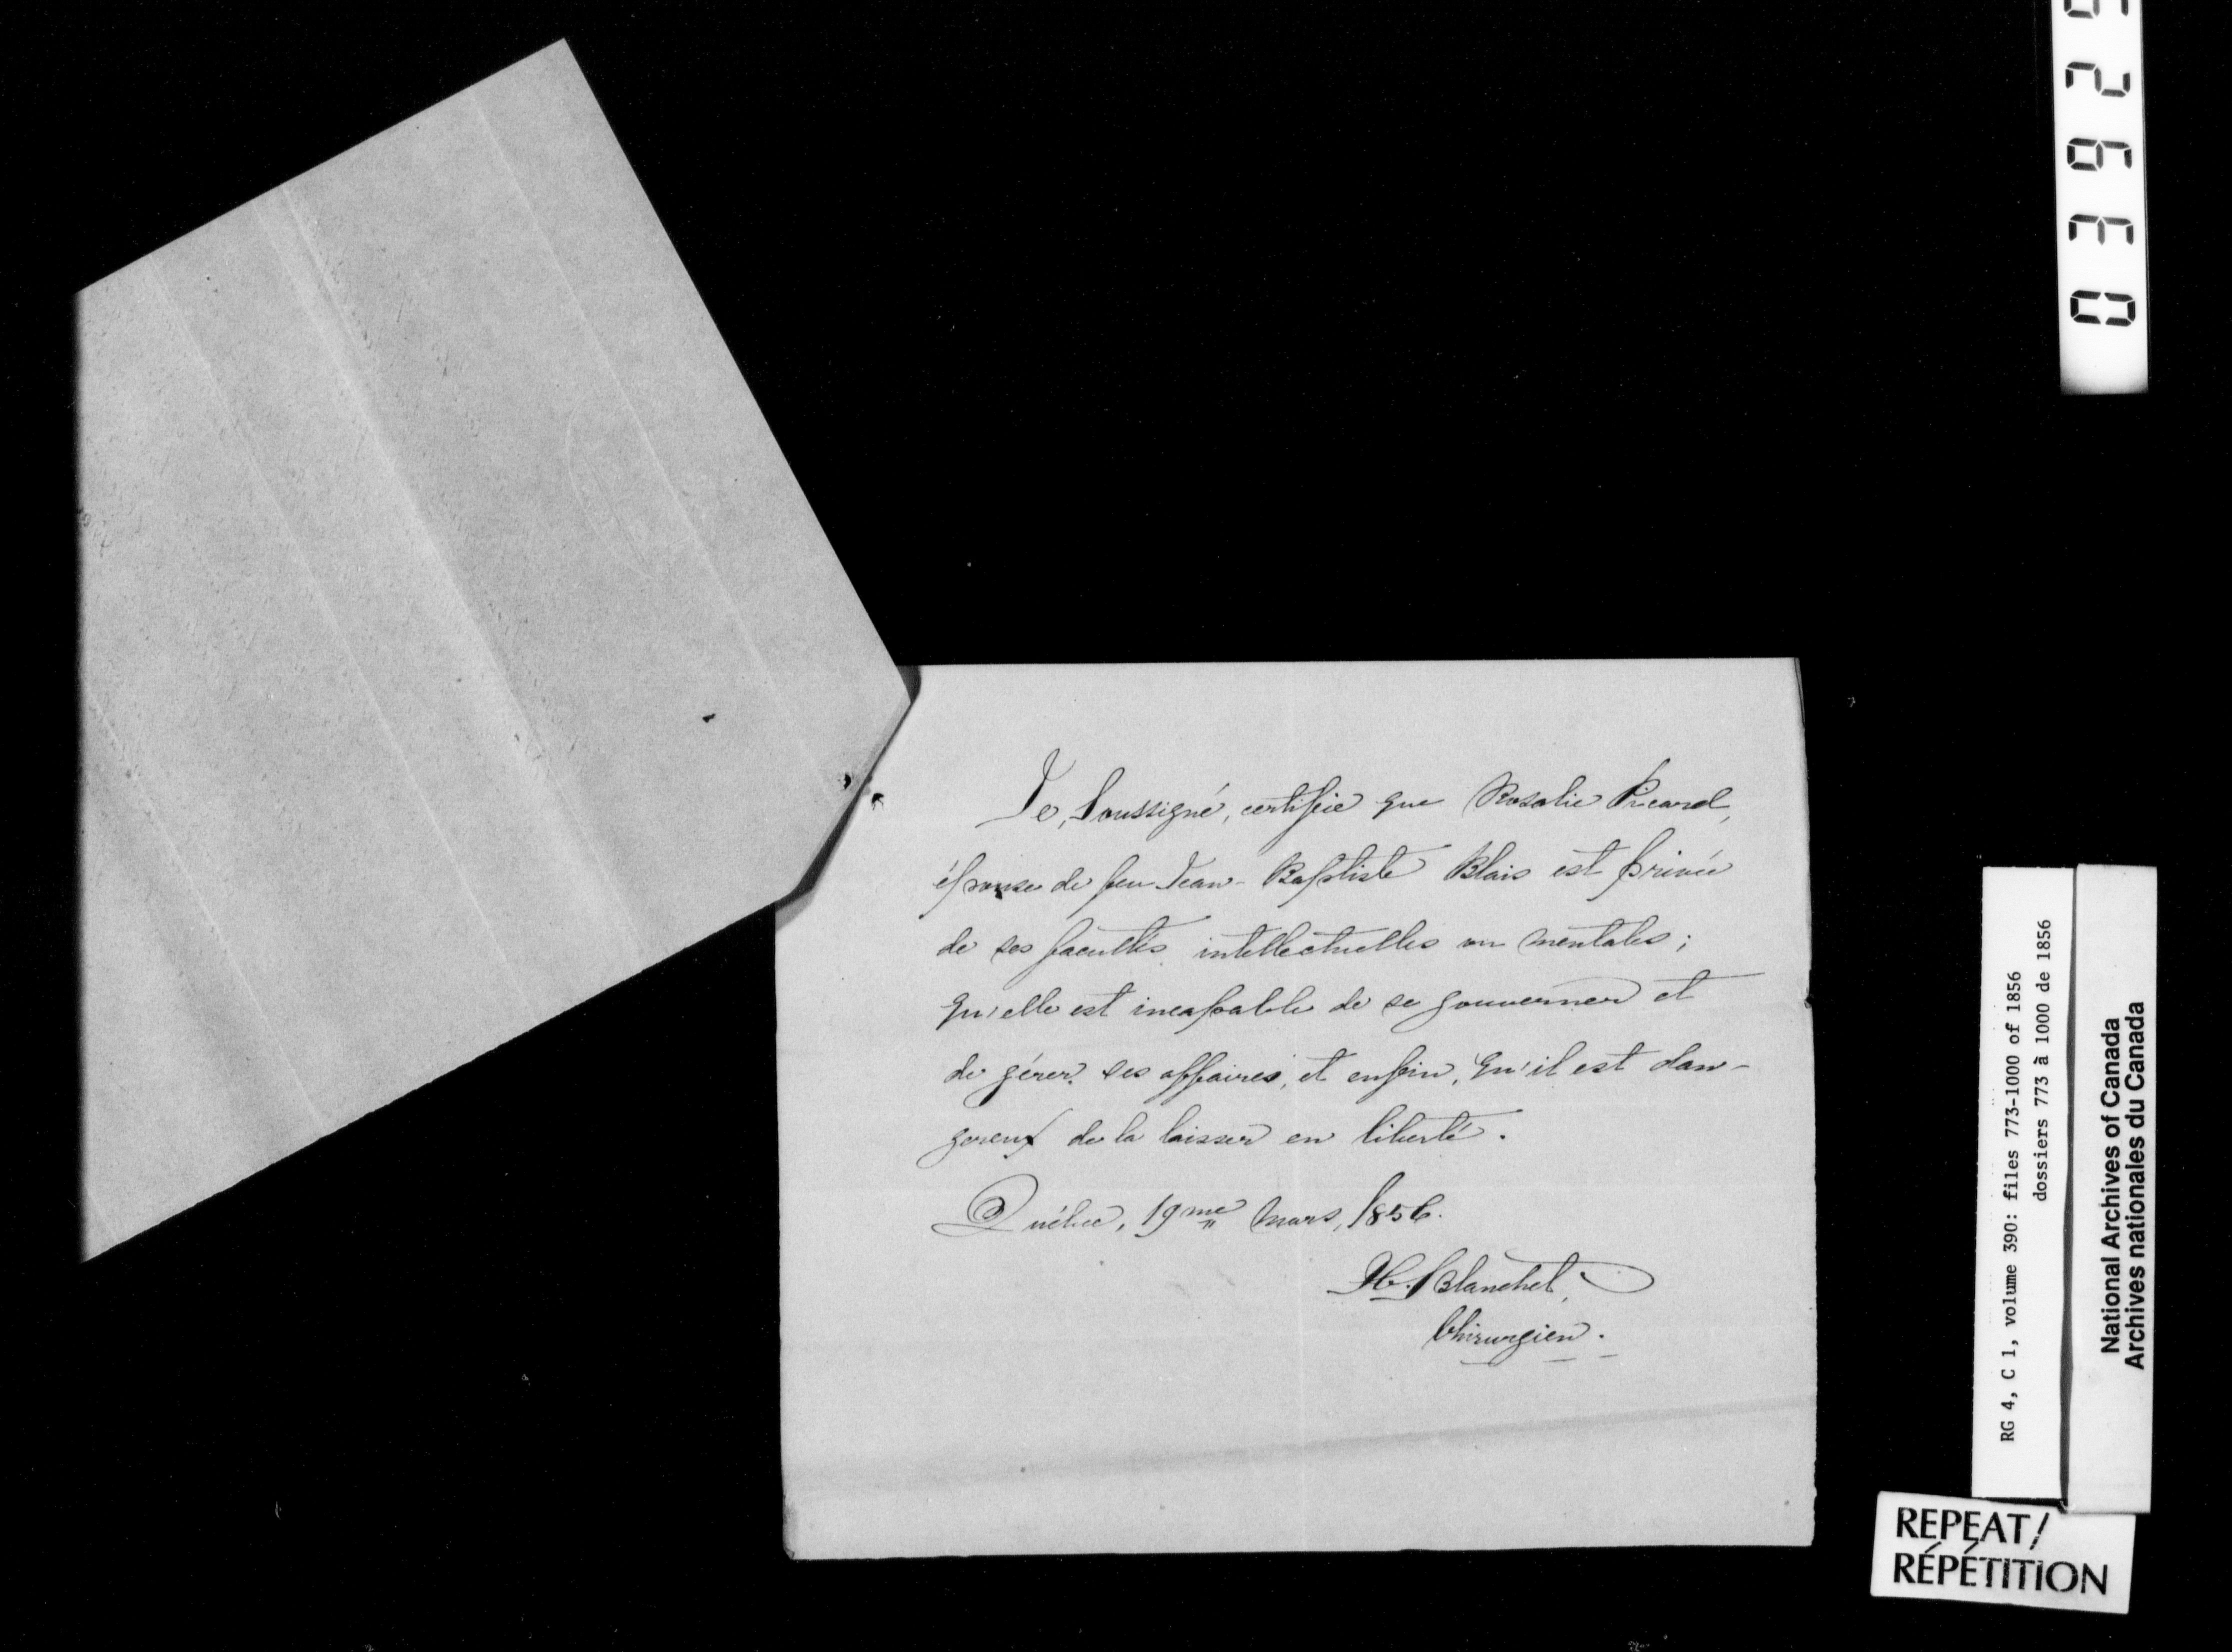 Je, Soussigné, certifie que Rosalie Picard,
épouse de feu Jean-Baptiste Blais est privée
de ses facultés intellectuelles ou mentales ;
qu'elle est incapable de se gouverner et
de gérer ses affaires, et enfin, qu'il est dan-
gereux de la laisser en liberté.
Québec, 19me mars, 1856.
H. Blanchet,
Chirurgien.
03929
RG 4, C 1, volume 390: files 773-1000 of 1856
dossiers 773 à 1000 de 1856
National Archives of Canada
Archives nationales du Canada
REPEAT/
RÉPÉTITION